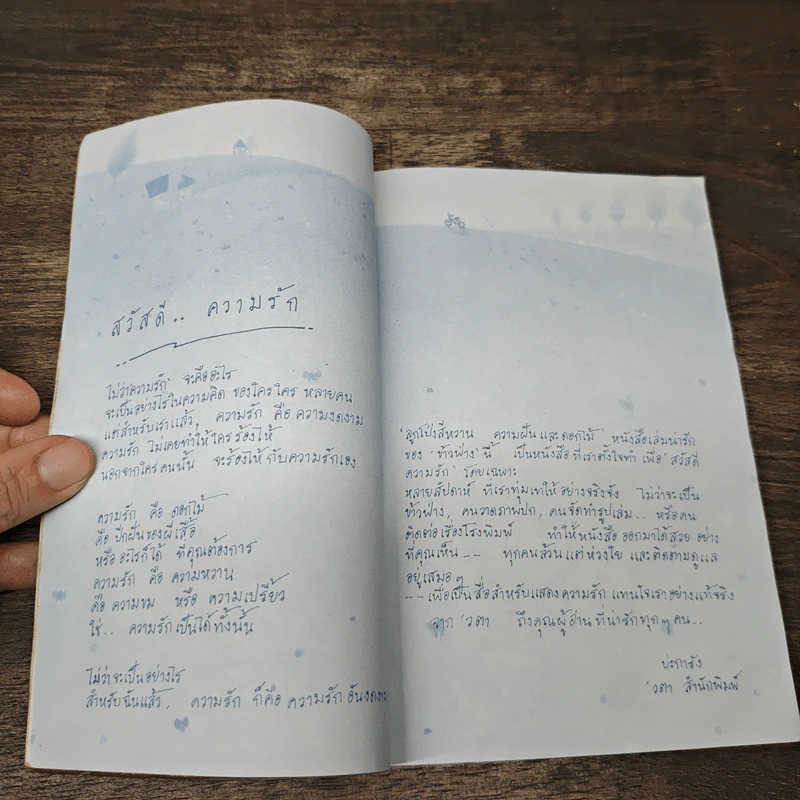 สวัสดี.. ความรัก
ไม่ว่าความรัก จะคืออะไร
จะเป็นอย่างไรในความคิด ของใครใคร หลายคน
แต่สำหรับเราแล้ว, ความรัก คือ ความงดงาม
ความรัก ไม่เคยทำให้ใครร้องไห้
นอกจากใครคนนั้น จะร้องไห้กับความรักเอง
ความรัก คือ ดอกไม้
คือ ปีกฝันของผีเสื้อ
หรือ อะไรก็ได้ ที่คุณต้องการ
ความรัก คือ ความหวาน
คือ ความขม หรือ ความเปรี้ยว
ใช่.. ความรักเป็นได้ทั้งนั้น
ไม่ว่าจะเป็นอย่างไร
สำหรับฉันแล้ว, ความรัก ก็คือ ความรัก อันงดงาม
'ลูกโป่งสีหวาน ความฝัน และดอกไม้' หนังสือเล่มน่ารัก
ของ 'ข้าวฟ่าง' นี้ เป็นหนังสือที่เราตั้งใจทำ เพื่อ 'สวัสดี
ความรัก' โดยเฉพาะ
หลายสัปดาห์ ที่เราทุ่มเทให้อย่างจริงจัง ไม่ว่าจะเป็น
ข้าวฟ่าง, คนวาดภาพปก, คนจัดทำรูปเล่ม.. หรือคน
ติดต่อเรื่องโรงพิมพ์ ทำให้หนังสือ ออกมาได้สวย อย่าง
ที่คุณเห็น -- ทุกคนล้วนแต่ห่วงใย และติดตามดูแล
อยู่เสมอ ๆ
--เพื่อเป็นสื่อสำหรับแสดงความรัก แทนใจเราอย่างแท้จริง
จาก 'วตา ถึงคุณผู้อ่าน ที่น่ารักทุก ๆ คน..
ปะการัง
'วตา สำนักพิมพ์